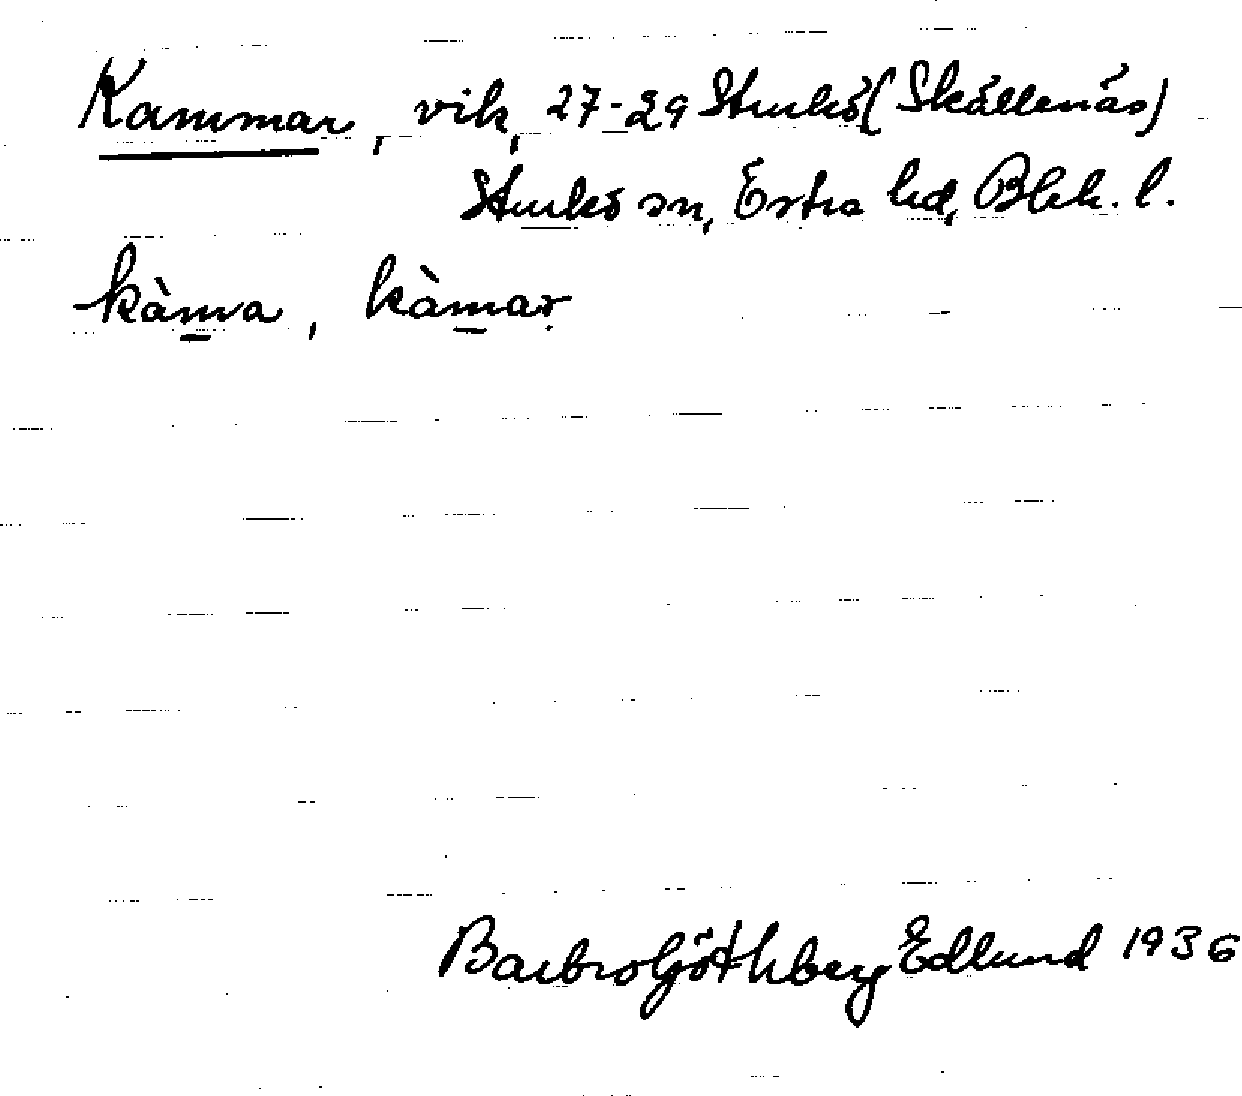 Kammar, vik, 27-29 Sturkö (Skällenäs)
Sturkö sn, Östra hd, Blek. l.
kàmva, kàmar
Barbro Göthberg Edlund 1936